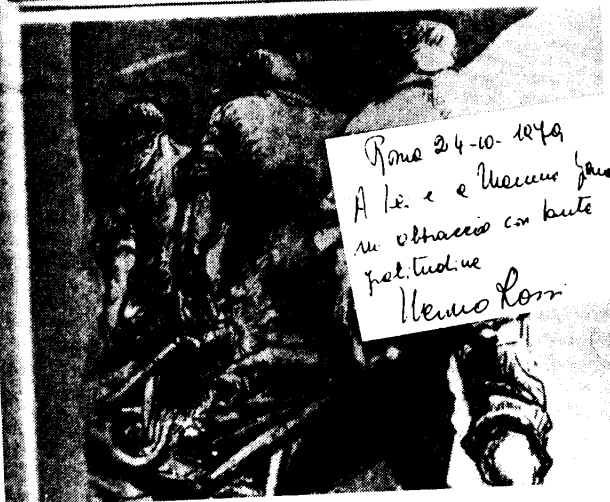 Roma 24-10-1979
A lei e a Mamma
un abbraccio con tanta
gratitudine
Rossi